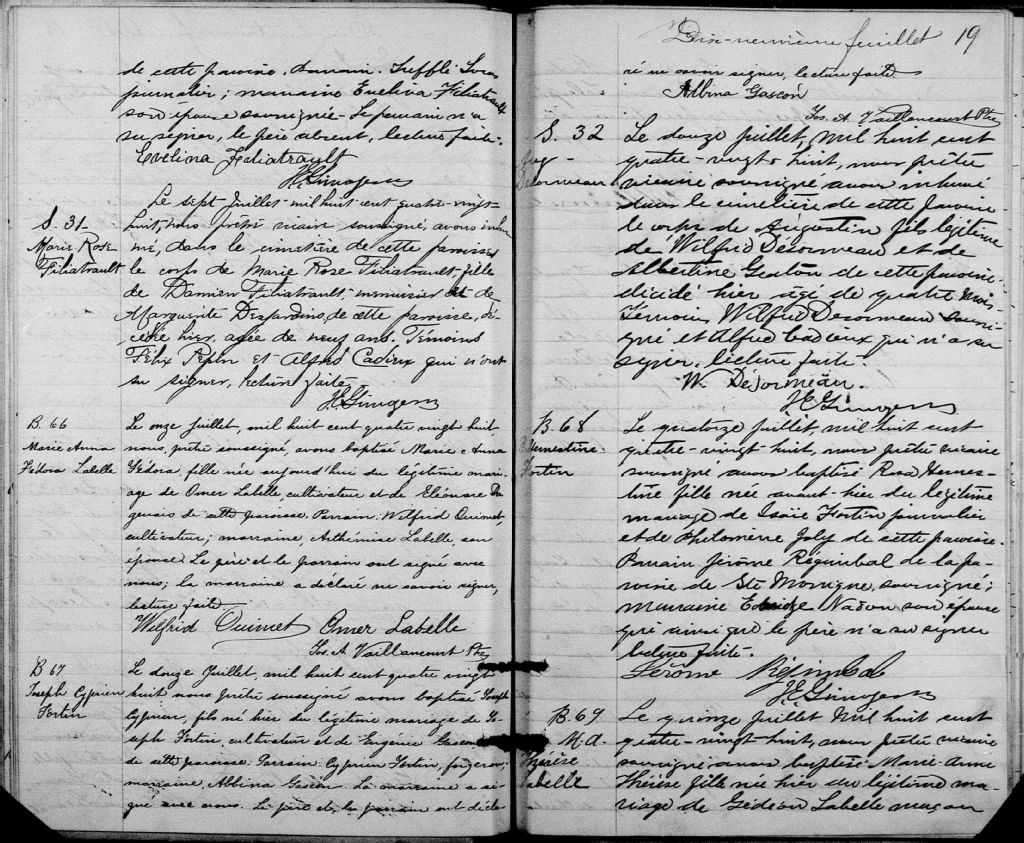 de cette paroisse. Parrain. Treffle
journalier; marraine Evelina Filiatrault
son épouse soussignée. Le parrain n'a
su signer, le père absent, lecture faite.
Evelina Feliatrault
S. 31
Marie Rose
Filiatrault
Le sept Juillet mil huit cent quatre-vingt-
huit, nous prêtre vicaire soussigné, avons inhu
mé, dans le cimetière de cette paroisse
le corps de Marie Rose Filiatrault, fille
de Damien Filiatrault, menuisier et de
Marguerite Desjardins, de cette paroisse, dé-
cédée hier, agée de neuf ans. Témoins
Félix Pépin et Alfred Cadieux qui n'ont
su signer, lecture faite.
B. 66
Marie Anna
Fédora Labelle
Le onze Juillet, mil huit cent quatre vingt huit,
nous, prêtre soussigné, avons baptisé Marie Anna
Fédora, fille née aujourd'hui du légitime mari-
age de Omer Labelle, cultivateur et de Eléonore Da
genais de cette paroisse. Parrain: Wilfrid Ouimet,
cultivateur; marraine, Arthémise Labelle, son
épouse. Le père et le parrain ont signé avec
nous; la marraine a déclaré ne savoir signer,
lecture faite.
Wilfrid Ouimet Omer Labelle
Jos. A Vaillancourt Ptre
B 67
Joseph Cyprien
Fortin
Le douze Juillet, mil huit cent quatre vingt
huit nous prêtre soussigné avons baptisé Joseph
Cyprien, fils né hier du légitime mariage de Jo-
seph Fortin, cultivateur et de Eugénie Gascon
de cette paroisse. Parrain: Cyprien Fortin, forgeron;
marraine, Albina Gascon. La marraine a si-
gné avec nous. Le père et le parrain ont décla
Dix-neuvième feuillet 19
ré ne savoir signer, lecture faite
Albina Gascon
Jos. A Vaillancourt Ptre
S. 32
Aug-
Desormeau
Le douze Juillet, mil huit cent
quatre-vingt-huit, nous prêtre
vicaire soussigné avons inhumé
dans le cimetière de cette paroisse
le corps de Augustin fils légitime
de Wilfrid Desormeau et de
Albertine de cette paroisse
décédé hier agé de quatre mois
Témoins Wilfrid Desormeau soussi-
gné et Alfred Cadieux qui n'a su
signer, lecture faite.
W. Désormeau.
B 68
R. Ernestine
Fortin
Le quatorze Juillet, mil huit cent
quatre-vingt-huit, nous prêtre vicaire
soussigné avons baptisé Rosa Ernes-
tine fille née avant-hier du légitime
mariage de Isaïe Fortin journalier
et de Philomène Joly de cette paroisse.
Parrain Jérôme Réginbal de la pa-
roisse de Ste Monique soussigné;
marraine Edwidge Nadon son épouse
qui ainsi que le père n'a su signer
lecture faite.
Jérôme Réginbal
B. 69
M. A.
Thérèse
Labelle
Le quinze Juillet mil huit cent
quatre-vingt-huit, nous prêtre vicaire
soussigné avons baptisé Marie-Anne
Thérèse fille née hier du légitime ma-
riage de Gédéon Labelle maçon